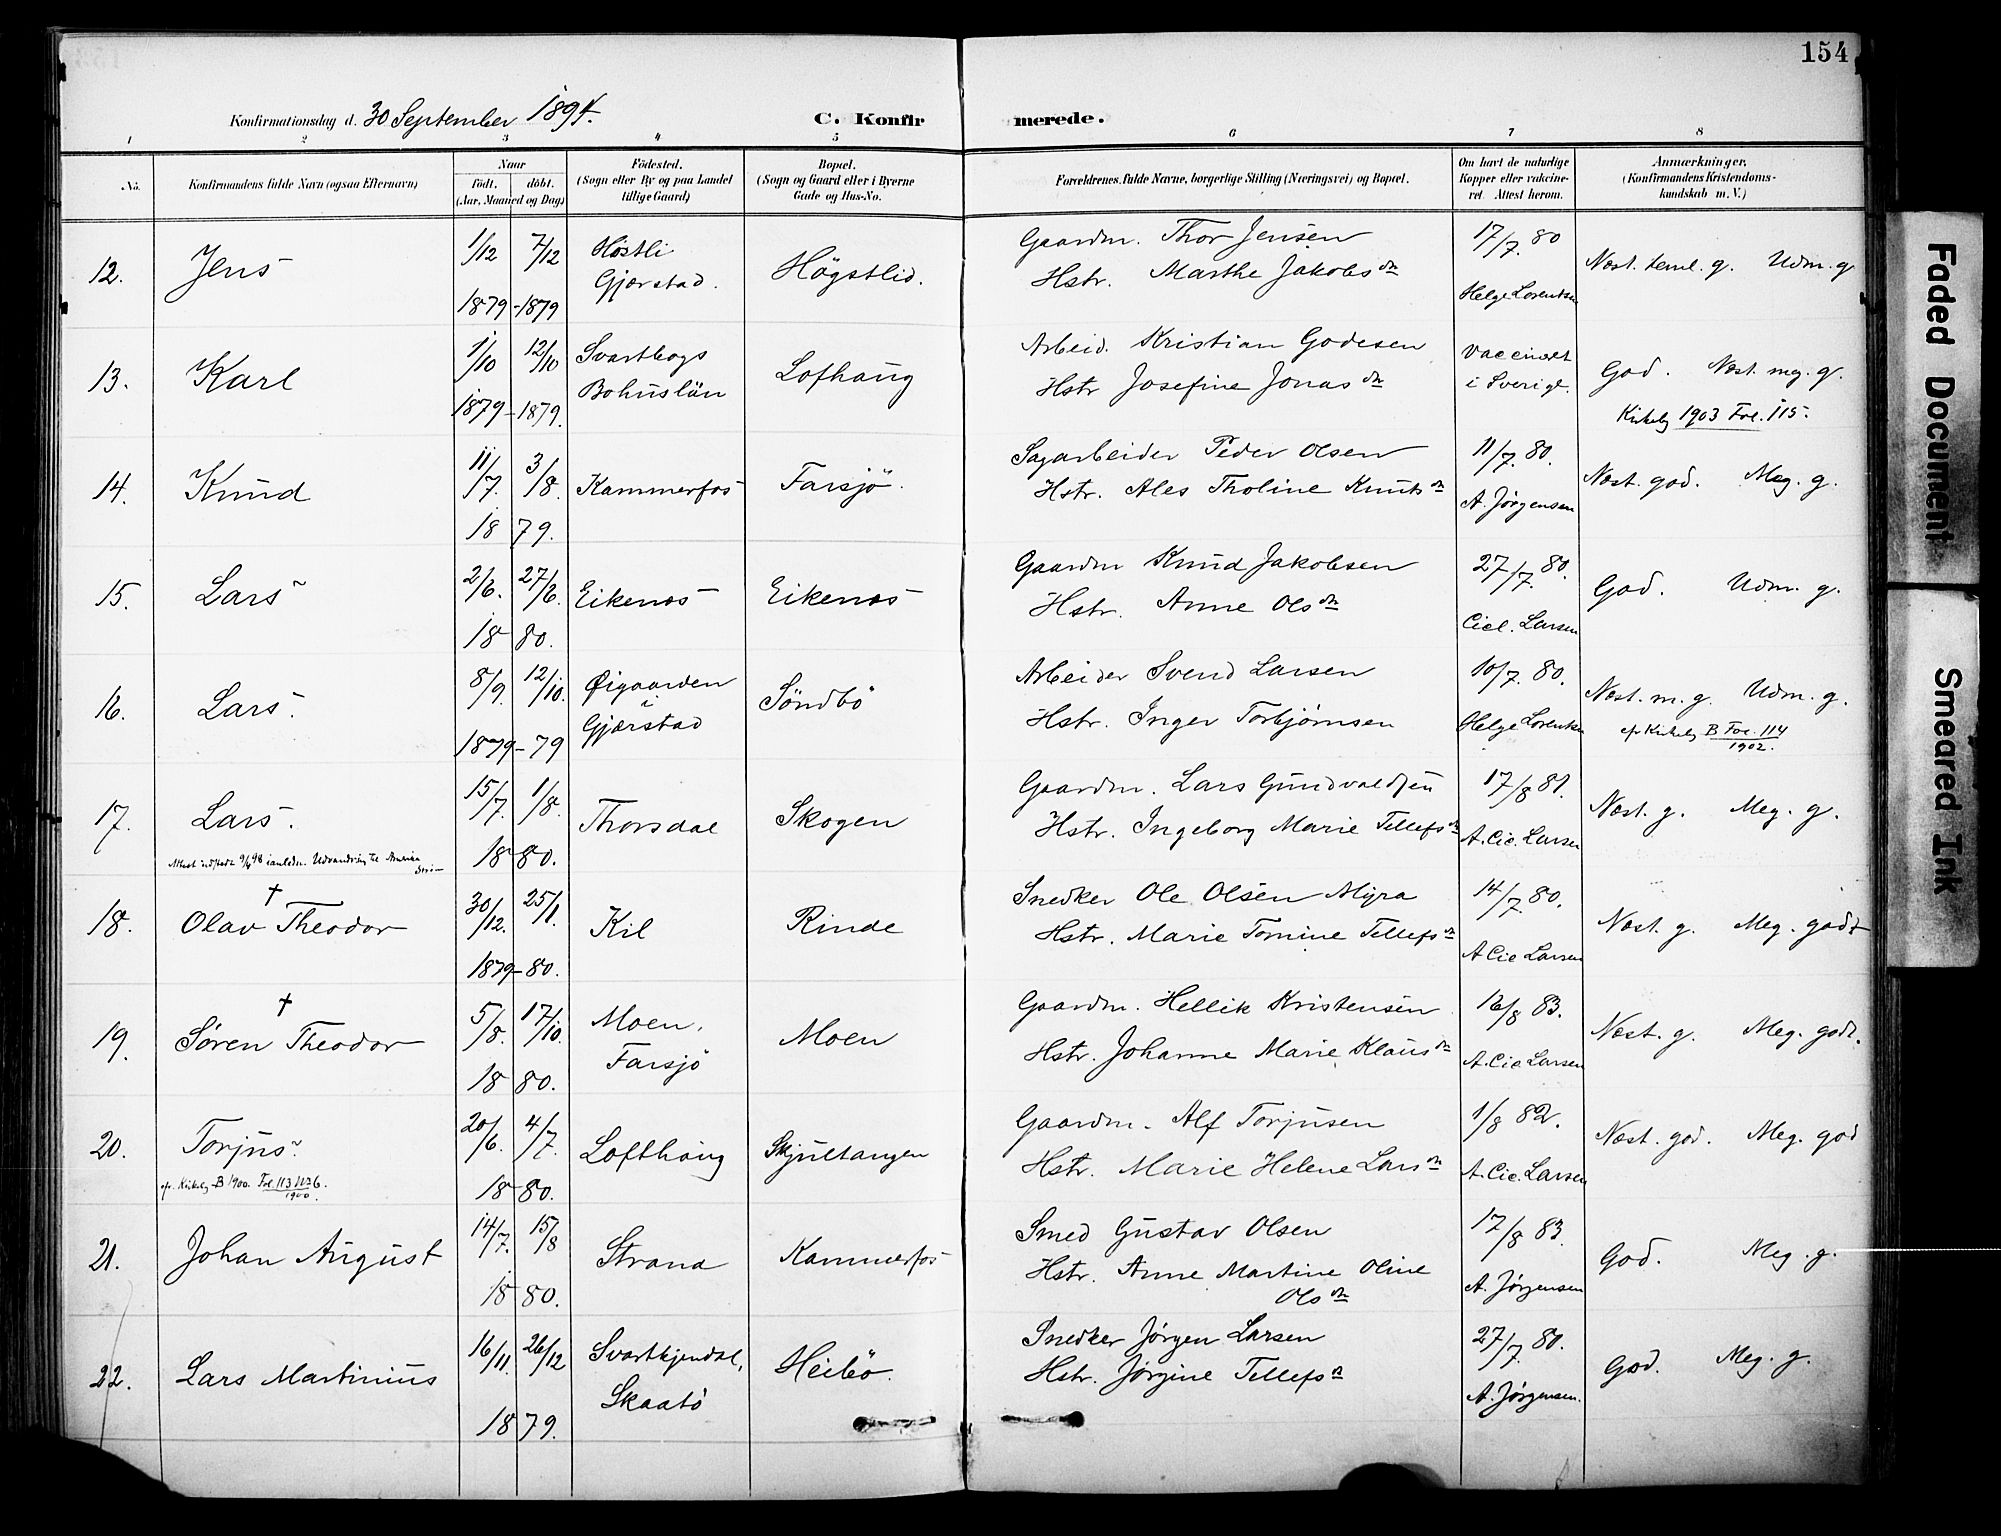 154
Konfirmationsdag d. 30 September 1894.
C. Konfirmerede.
1 2 3 4 5 6 7 8
No.
Konfirmandens fulde Navn (ogsaa Efternavn)
Naar
født. døbt.
(Aar, Maaned og Dag)
Fødested.
(Sogn eller By og paa Landet
tillige Gaard)
Bopæl.
(Sogn og Gaard eller i Byerne
Gade og Hus-No.
Forældrenes fulde Navne, borgerlige Stilling (Næringsvei) og Bopæl.
Om havt de naturlige
Kopper eller vakcine-
ret. Attest herom.
Anmærkninger.
(Konfirmandens Kristendoms-
kundskab m. V.)
12. Jens 1/12 7/12 1879-1879 Høstli Gjærstad. Högstlid.
Gaardm. Thor Jensen 17/7. 80
Hstr. Marthe Jakobsdn Helge Lorentsen
Næst. teml. g. Udm. g
13. Karl 1/10 12/10 1879-1879. Svartbogs Bohuslän Lofthaug
Arbeid. Kristian Godesen vaccineret
Hstr Josefine Jonasdn i Sverige.
God. Næst. meg. g.
Kirkeb 1903 Fol. 115.
14. Knud 11/7. 3/8. 1879. Kammerfos Farsjö.
Sagarbeider Peder Olsen 11/7. 80.
Hstr. Ales Tholine Knutsdn A. Jørgensen
Næst. god. Meg. g.
15. Lars 2/6. 27/6. 1880. Eikenæs Eikenæs
Gaardm Knud Jakobsen 27/7. 80.
Hstr. Anne Olsdn Ciel. Larsen
God. Udm. g.
16. Lars. 8/9. 12/10. 1879-79 Øigaarden i Gjærstad Söndbö
Arbeider Svend Larsen 10/7. 80.
Hstr. Inger Torbjørnsen Helge Lorentsen
Næst. m. g. Udm. g.
cfr Kirkeb B Fol. 114
1902.
17. Lars. 15/7. 1/8. 1880. Thorsdal Skogen
Gaardm. Lars Gundvaldsen 17/8 81.
Hstr. Ingeborg Marie Tellefsdn A. Cic. Larsen
Næst. g. Meg. g.
Attest udstedt 9/4 98 ianledn. Udvandring til Amerika
18. † Olav Theodor 30/12. 25/1. 1879-80. Kil Rinde
Snedker Ole Olsen Myra 14/7. 80.
Hstr. Marie Tomine Tellefsdn A Cic Larsen
Næst. g. Meg. godt
19. † Søren Theodor 5/8. 17/10. 1880. Moen, Farsjö Moen
Gaardm. Hellik Kristensen 16/8 83.
Hstr. Johanne Marie Klausdn A. Cic Larsen
Næst. g. Meg. godt.
20. Torjus 20/6. 4/7. 1880. Lofthaug Skjultangen
Gaardm. Alf Torjusen 1/8 82.
Hstr. Marie Helene Larsdn A. Cic. Larsen
Næst. god. Meg. god
cfr. Kirkeb B 1900. Fol. 113 N 76.
1900.
21. Johan August 14/7. 15/8 1880. Strand Kammerfos
Smed Gustav Olsen 17/8 83.
Hstr. Anne Martine Oline A. Jørgensen
Olsdn
God. Meg. g.
22. Lars Martinius 16/11. 26/12 1879. Svartkjendal, Skaatö Heibö.
Snedker Jørgen Larsen 27/7. 80.
Hstr. Jørgine Tellefsdn A. Jørgensen.
God. Meg. g.
Faded Document
Smeared Ink